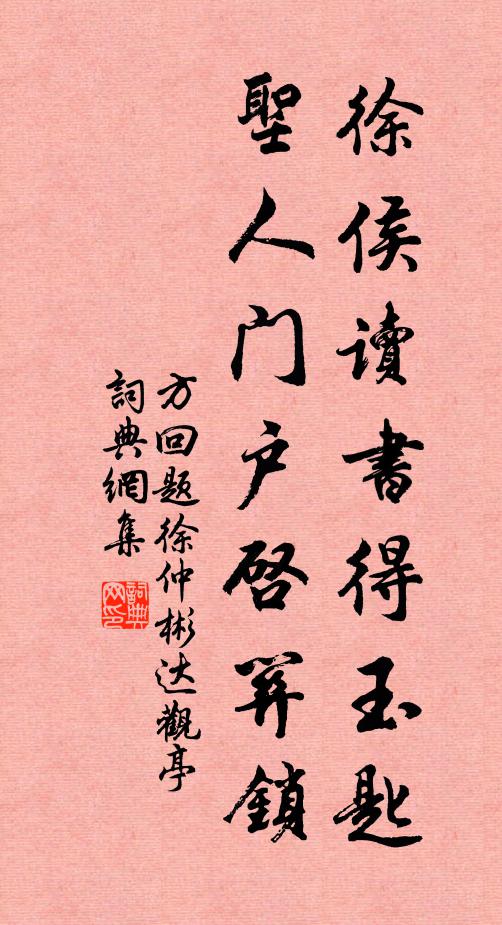 徐侯讀書得玉匙
聖人門户啓笄鎖
方回题徐仲彬达觀亭
詞典網集
詞典网印